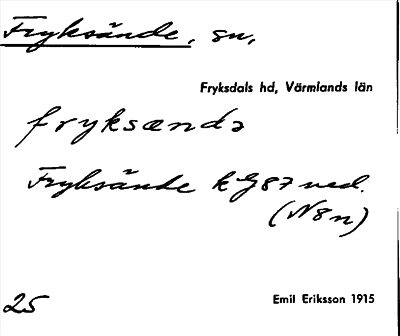 Fryksände, sn,
Fryksdals hd, Värmlands län
fryksændə
Fryksände k G 87 ned.
(N8n)
25
Emil Eriksson 1915